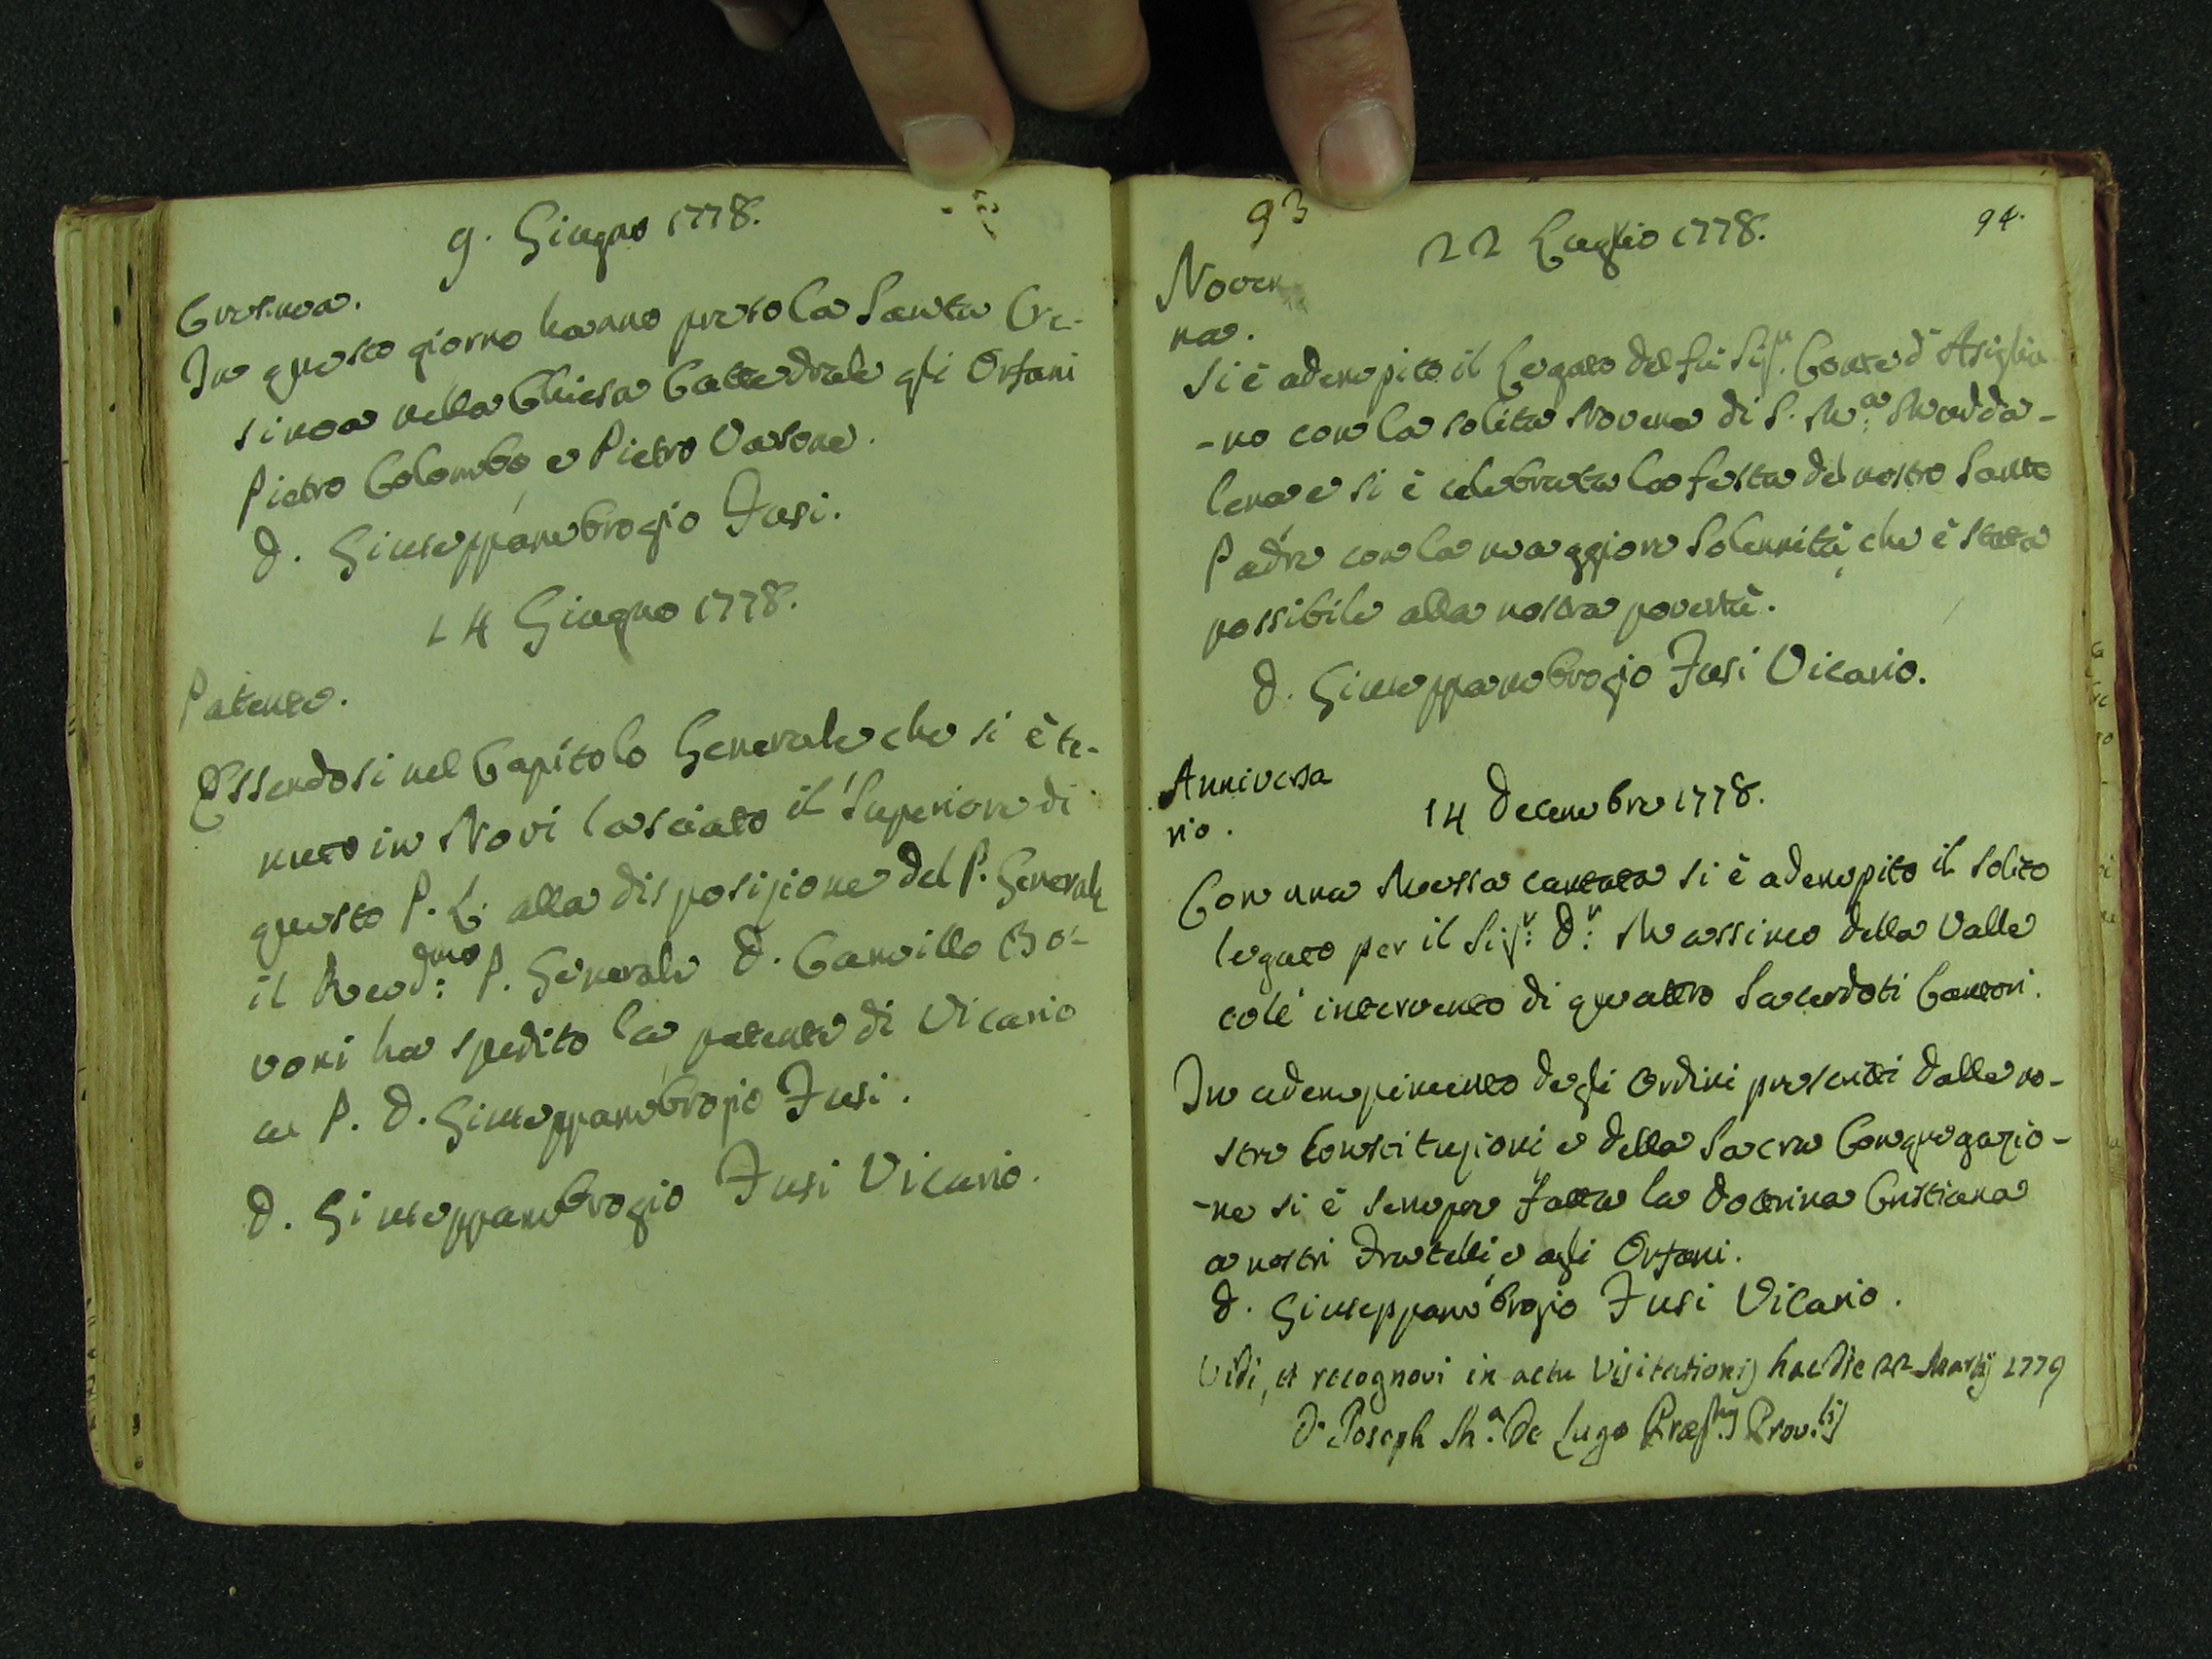 9. Giugno 1778.
Cresima.
In questo giorno hanno preso la Santa Cre-
sima nella Chiesa Cattedrale gli Orfani
Pietro Colombo e Pietro Vasone.
D. Giuseppambrogio Fusi.
14 Giugno 1778.
Patente.
Essendosi nel Capitolo Generale che si è te-
nuto in Novi lasciato il Superiore di
questo P. L. alla disposizione del P. Generale
il Revd:mo P. Generale D. Camillo Bo-
voni ha spedito la patente di Vicario
al P. D. Giuseppambrogio Fusi.
D. Giuseppambrogio Fusi Vicario.
93
94.
22 Luglio 1778.
Noven
na.
Si è adempito il Legato del fu Sigr. Conte d'Asiglia
-no con la solita Novena di S. Ma: Madda-
lena e si è celebrata la festa del nostro Santo
Padre con la maggiore Solennità, che è stata
possibile alla nostra povertà.
D. Giuseppambrogio Fusi Vicario.
Anniversa
rio.
14 Decembre 1778.
Con una Messa cantata si è adempito il solito
legato per il Sigr: Dn: Massimo della Valle
colé intervento di quattro Sacerdoti Cantori.
In adempimento degli Ordini presenti dalle no-
stre Constituzioni e della Sacra Congregazio-
-ne si è sempre fatta la dottrina Cristiana
a nostri Fratelli, e agli Orfani.
D. Giuseppambrogio Fusi Vicario.
Vidi, et recognovi in actu Visitationis hac die 22 Martij 1779
D. Joseph Ma. De Lugo Præptus Provlis